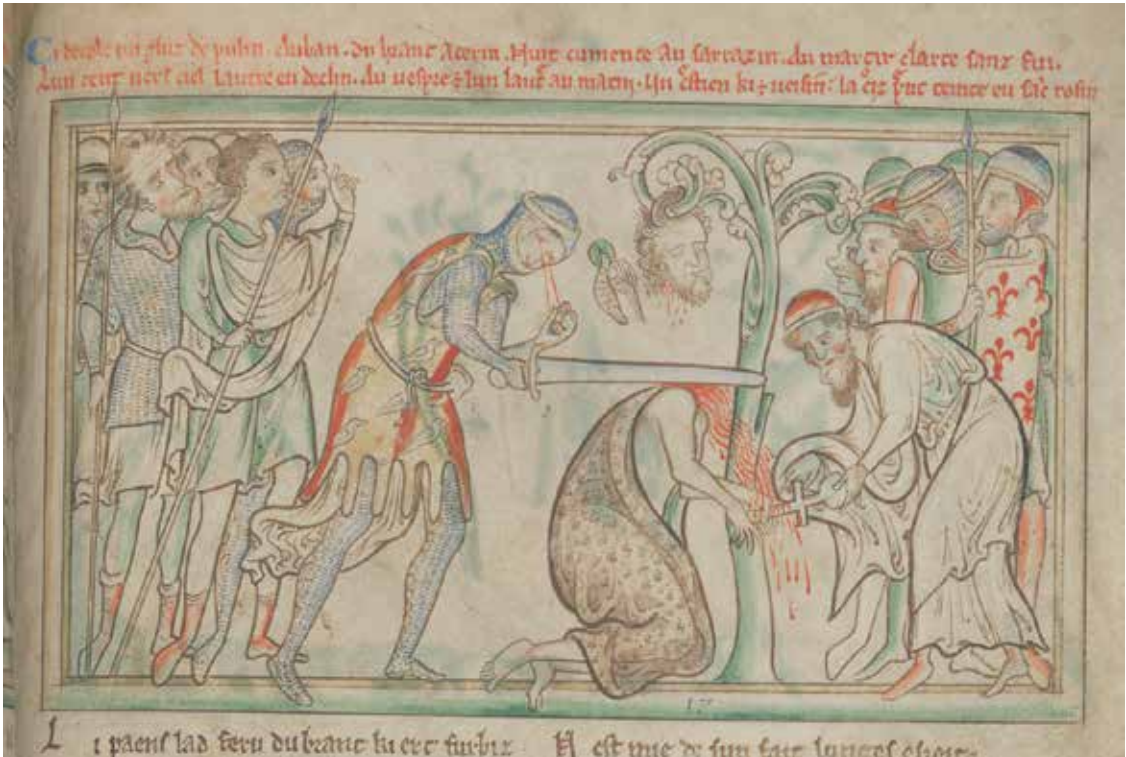 Ci decole fiz de putin. Auban. du branc acerin. Nuit cumence au sarrazin. du martir clarte sanz fin.
Lun tent vers ciel lautre en declin. du vespre lun lautre au matin. Un cstien ki veisin: la prent teinte en sanc rosin
L i paens lad feru du branc ki ert furbiz N est mie de sun fait lunges